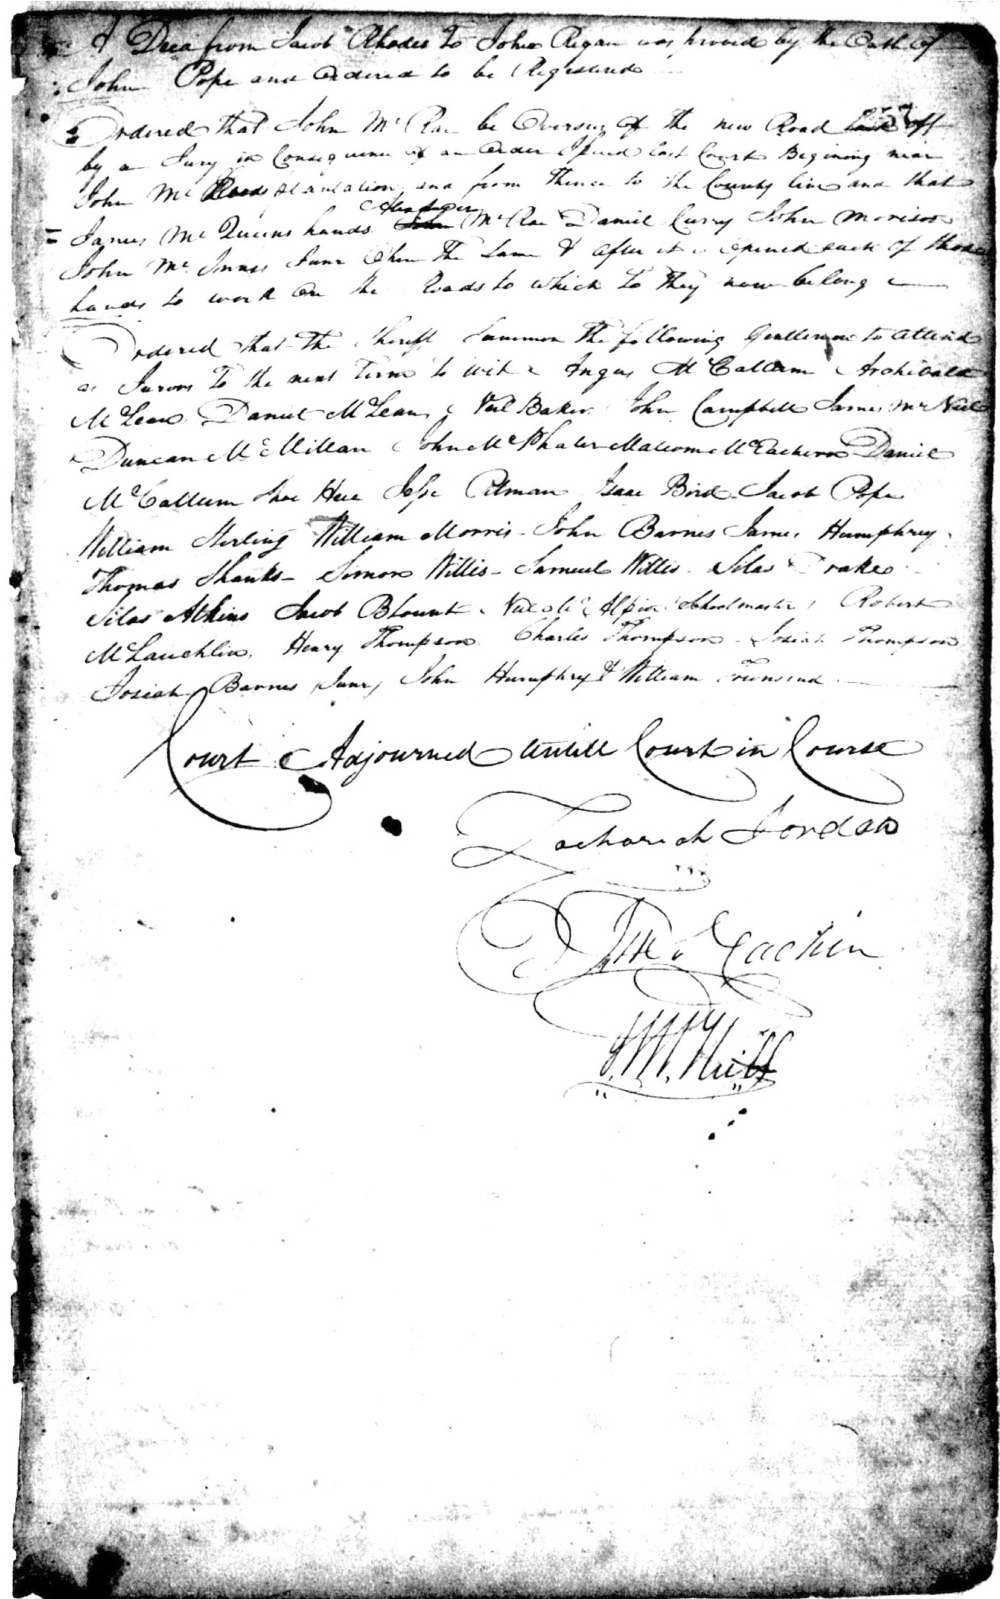 A Deed from Jacob Rhodes To John Regan was proved by the Oath of
John Pope and ordered to be Registered
Ordered that John McRae be Overseer of the new Road laid off
by a Jury in Consequence of an order Issued last Court Begining near
John Mc plantation, and from Thence to the County line and that
James McQueens hands Alexander McRae Daniel Curry John Morison
John McInnis Junr Open The Same & after it is opened each of those
hands to work on the Roads to which to They now belong
Ordered that The Sheriff Summon The following Gentlemen to attend
as Jurors To the next Term to wit Angus McCallum Archibald
McLean Daniel McLean, Neil Baker, John Campbell James McNeil
Duncan McMillan John McPhater Malcom McEachern Daniel
McCallum Jesse Pitman Isaac Bird Jacob Pope
William Sterling William Morris - John Barnes James Humphrey
Thomas Shanks - Simon Willis - Samuel Willis - Silas Drake
Silas Atkins Jacob Blount Neil McAlpin Schoolmaster, Robert
McLauchlin, Henry Thompson Charles Thompson - Josiah Thompson
Josiah Barnes Junr, John Humphry & William Townsend
Court Adjourned untill Court in Course
Zachariah Jordan